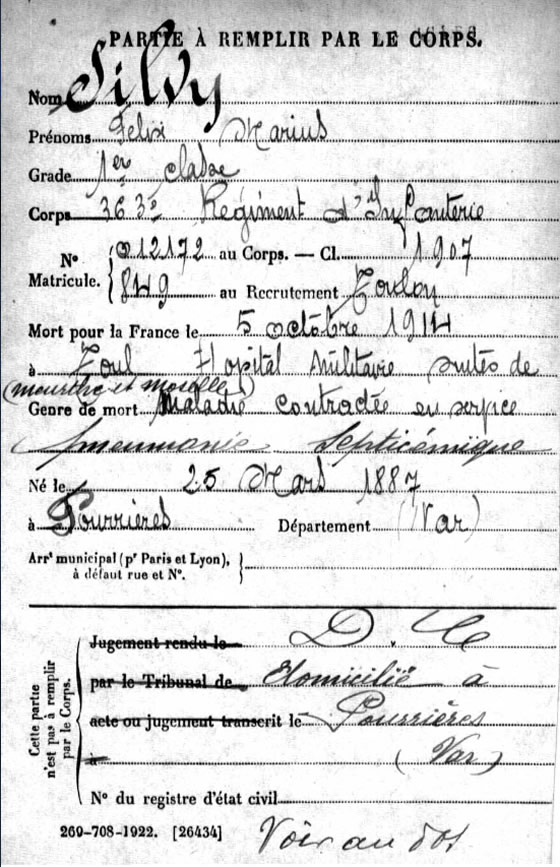 PARTIE À REMPLIR PAR LE CORPS.
Nom Silvy
Prénoms Felix Marius
Grade 1er classe
Corps 363e Regiment d'Infanterie
N° Matricule. 012172 au Corps. — Cl. 1907
849 au Recrutement Toulon
Mort pour la France le 5 octobre 1914
à Toul Hopital Militaire suites de
(meurthe et moselle)
Genre de mort Maladie contractée en service
pneumonie Septicémique
Né le 25 Mars 1887
à Pourrières Département (Var)
Arrt municipal (pr Paris et Lyon),
à défaut rue et N°.
Cette partie
n'est pas à remplir
par le Corps.
Jugement rendu le D. C
par le Tribunal de Domicilié à
acte ou jugement transcrit le Pourrières
à (Var)
N° du registre d'état civil
269-708-1922. [26434] Voir au dos